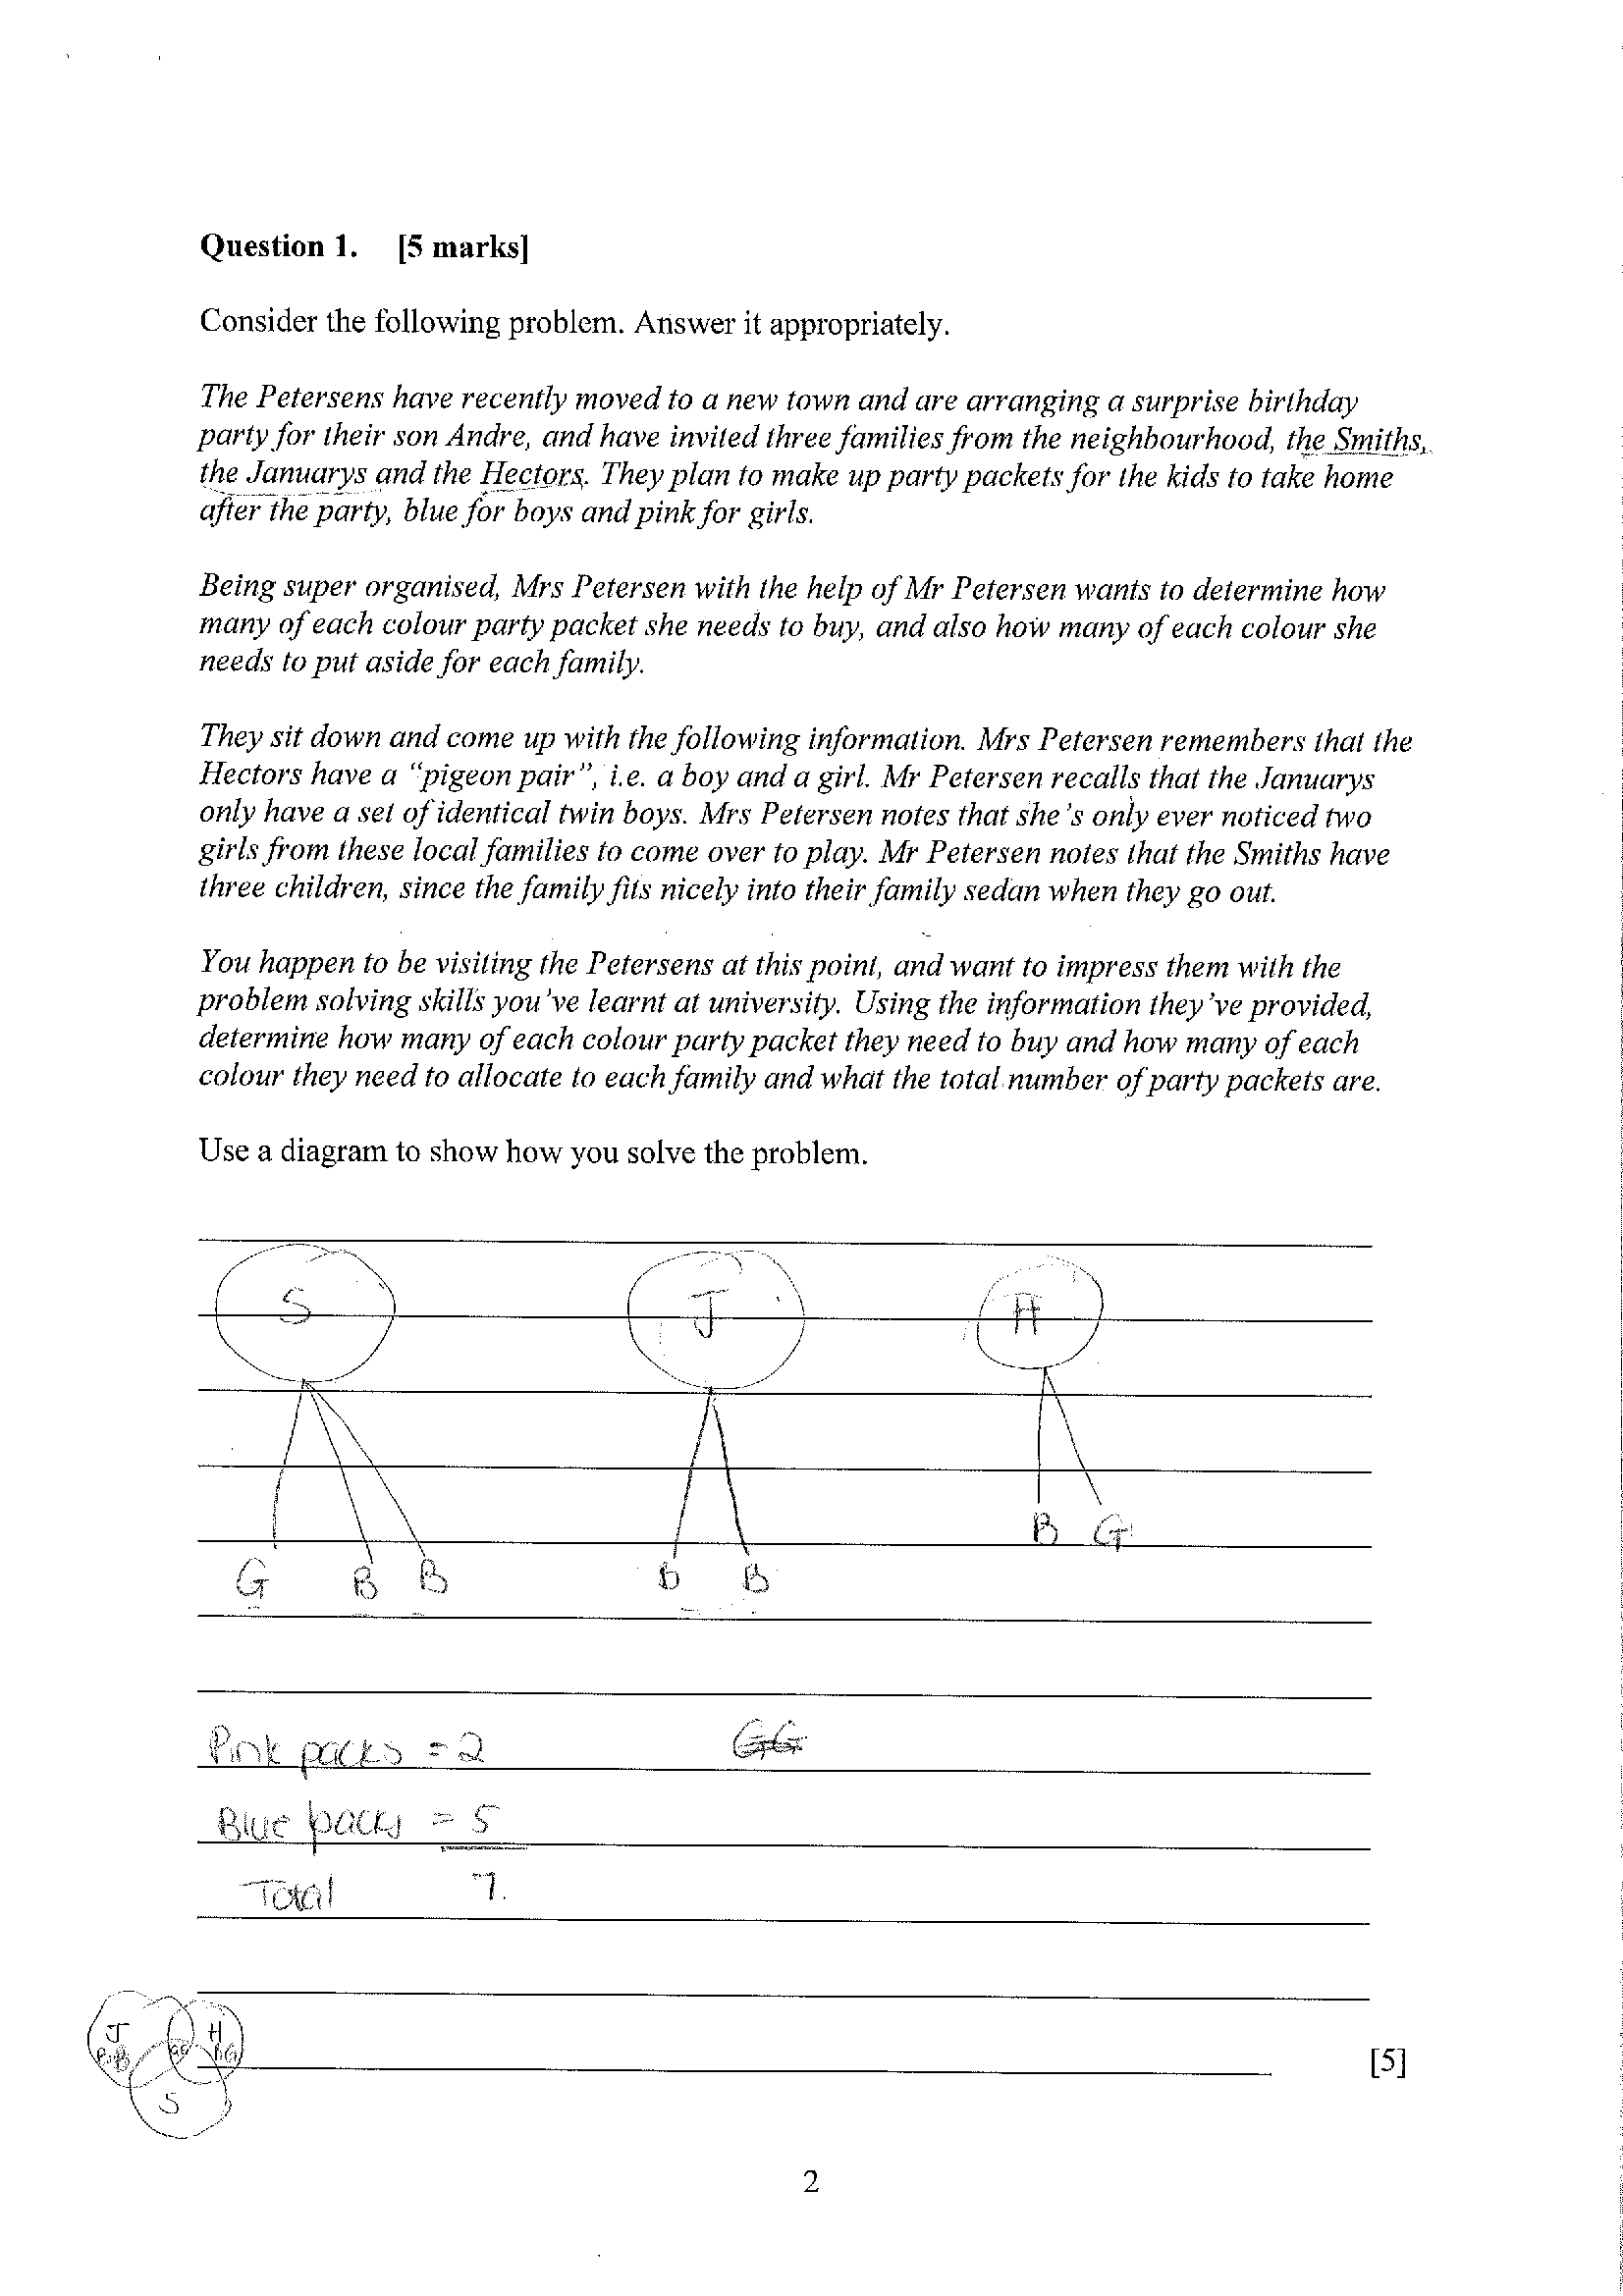 Question 1. [5 marks]
Consider the following problem. Answer it appropriately.
The Petersens have recently moved to a new town and are arranging a surprise birthday
party for their son Andre, and have invited three families from the neighbourhood, the Smiths,
the Januarys and the Hectors. They plan to make up party packets for the kids to take home
after the party, blue for boys and pink for girls.
Being super organised, Mrs Petersen with the help of Mr Petersen wants to determine how
many of each colour party packet she needs to buy, and also how many of each colour she
needs to put aside for each family.
They sit down and come up with the following information. Mrs Petersen remembers that the
Hectors have a "pigeon pair", i.e. a boy and a girl. Mr Petersen recalls that the Januarys
only have a set of identical twin boys. Mrs Petersen notes that she's only ever noticed two
girls from these local families to come over to play. Mr Petersen notes that the Smiths have
three children, since the family fits nicely into their family sedan when they go out.
You happen to be visiting the Petersens at this point, and want to impress them with the
problem solving skills you've learnt at university. Using the information they've provided,
determine how many of each colour party packet they need to buy and how many of each
colour they need to allocate to each family and what the total number of party packets are.
Use a diagram to show how you solve the problem.
S J H
B G
G B B B B
Pink packs = 2 GG
Blue packs = 5
Total 7.
J H
S
[5]
2